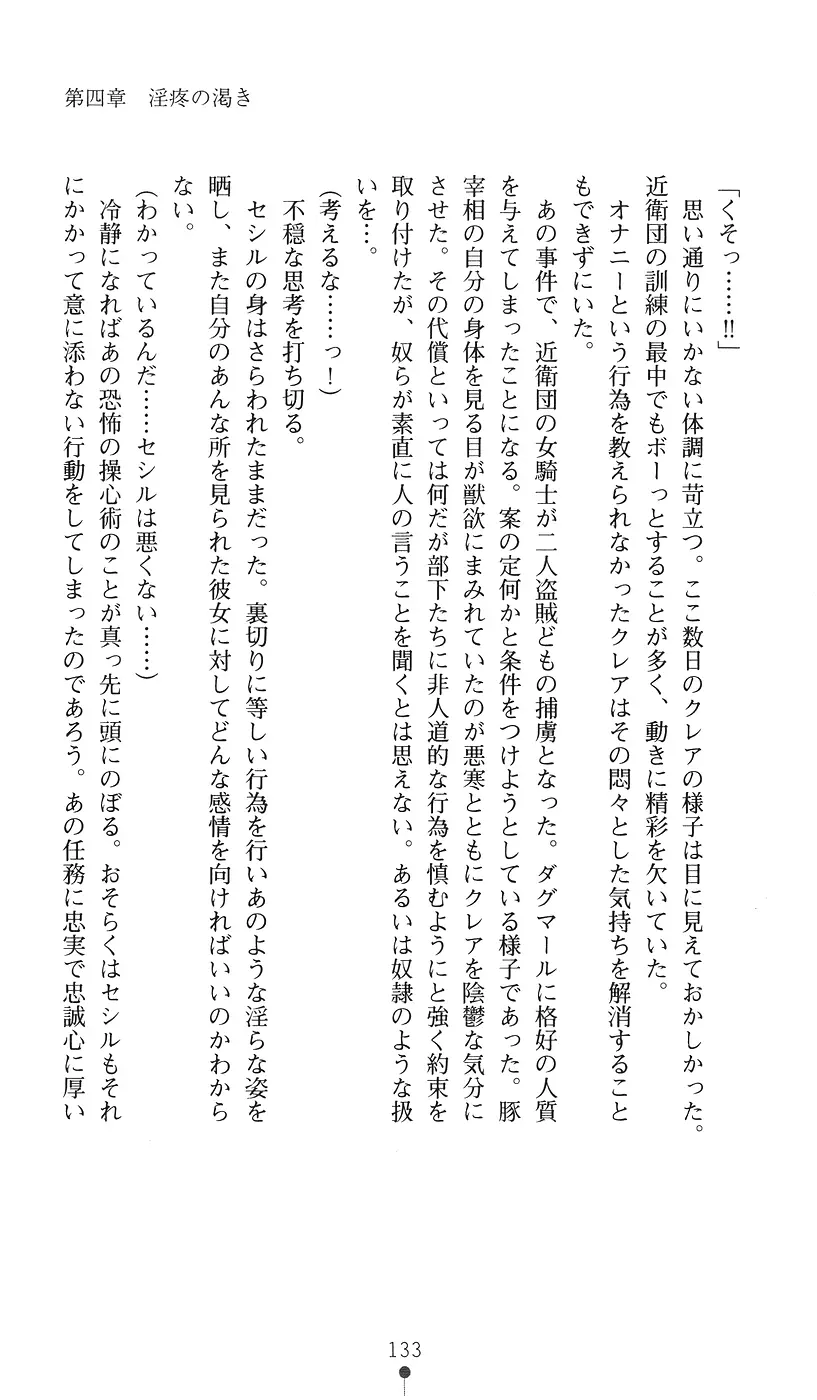 第四章　淫疼の渇き
「くそっ……!!」
　思い通りにいかない体調に苛立つ。ここ数日のクレアの様子は目に見えておかしかった。
近衛団の訓練の最中でもボーっとすることが多く、動きに精彩を欠いていた。
　オナニーという行為を教えられなかったクレアはその悶々とした気持ちを解消すること
もできずにいた。
　あの事件で、近衛団の女騎士が二人盗賊どもの捕虜となった。ダグマールに格好の人質
を与えてしまったことになる。案の定何かと条件をつけようとしている様子であった。豚
宰相の自分の身体を見る目が獣欲にまみれていたのが悪寒とともにクレアを陰鬱な気分に
させた。その代償といっては何だが部下たちに非人道的な行為を慎むようにと強く約束を
取り付けたが、奴らが素直に人の言うことを聞くとは思えない。あるいは奴隷のような扱
いを…。
（考えるな……っ！）
　不穏な思考を打ち切る。
　セシルの身はさらわれたままだった。裏切りに等しい行為を行いあのような淫らな姿を
晒し、また自分のあんな所を見られた彼女に対してどんな感情を向ければいいのかわから
ない。
（わかっているんだ……セシルは悪くない……）
　冷静になればあの恐怖の操心術のことが真っ先に頭にのぼる。おそらくはセシルもそれ
にかかって意に添わない行動をしてしまったのであろう。あの任務に忠実で忠誠心に厚い
133